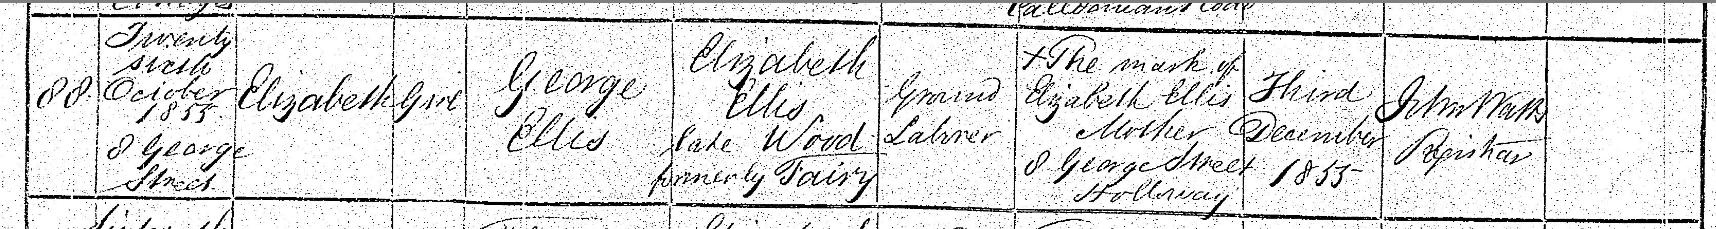 Caledonian Road
88.
Twenty
sixth
October
1855
8 George
Street
Elizabeth
Girl
George
Ellis
Elizabeth
Ellis
late Wood
formerly Fairy
Ground
Laborer
X The mark of
Elizabeth Ellis
Mother
8 George Street
Holloway
Third
December
1855
John Watts
Registrar